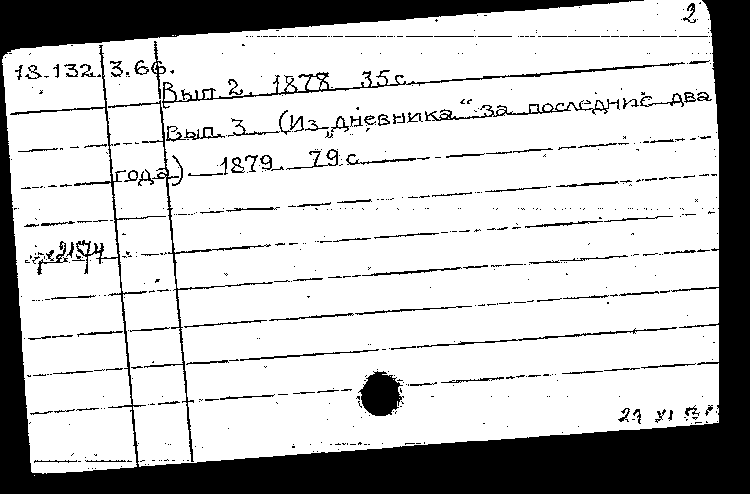 2
18.132.3.66.
Вып 2. 1878 35 с.
Вып. 3 (Из „дневника“ за последние два
года). 1879. 79 с